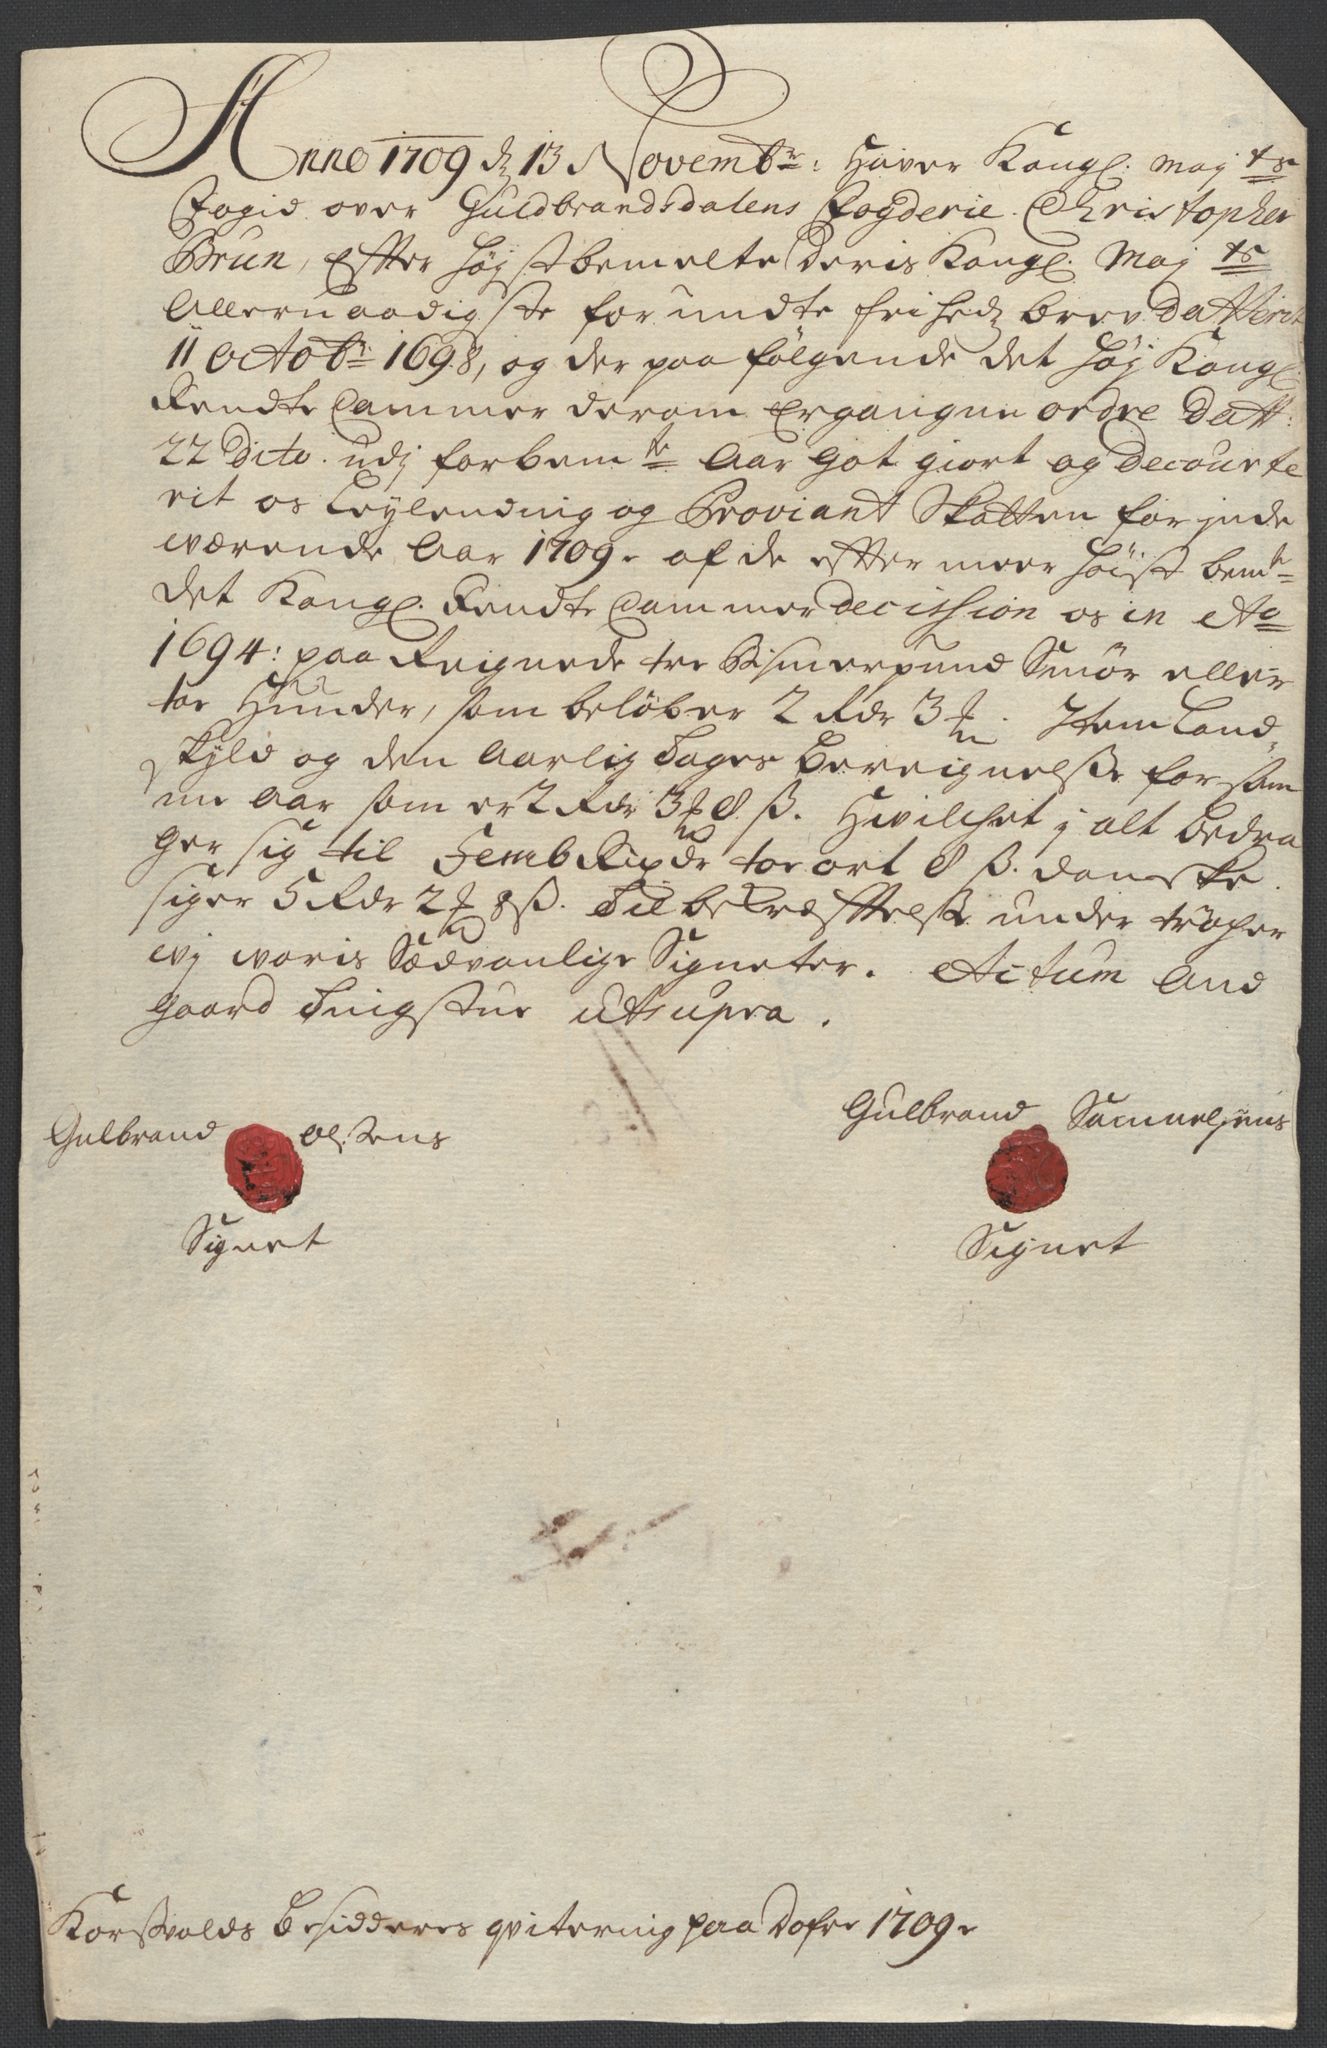 Anno 1709 dz 13 Novembr: Haver Kongl. Maj ts
Fogid over Guldbrandsdalens Fogderie. Christopher
Brun, Effter høystbemelte deris Kongl. Maj ts
Allernaadigste forundte friheds brev datterit
11 Octobr: 1698, og der paa følgende det høy Kongl:
Rendte Cammer derom Ergangne ordre datt:
22 Dito. udj forbemte Aar got giort og decourte
rit os Leylending og Proviant Skatten for jnde
wærende Aar 1709. af de effter meer høist bemte
det Kongl. Rendte Cammer decission os in Ao
1694: paa Reignede tre Bismerpund Smør eller
toe Hunder, som beløber 2 Rdr 3 ₰. Item Land,
skyld og den Aarlig Tages bereignelsse for sam
me Aar som er 2 Rdr 3 ₰ 8 ß. Hvilchet j alt bedra
ger sig til Femb Rixdr toe ort 8 ß. danske.
siger 5 Rdr 2 ₰ 8 ß. Til bekræfftelsse under tröcher
wj woris Sædvanlige Signeter. Actum And
gaard Tingstue ut supra.
Gulbrand Olsens Gulbrand Samuelsens
Signet Signet
Korsvolds besidderes qvitering paa Dofre 1709.